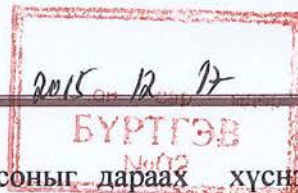 2015 он 12 сар 17
БҮРТГЭВ
№02
соныг дараах хүсн